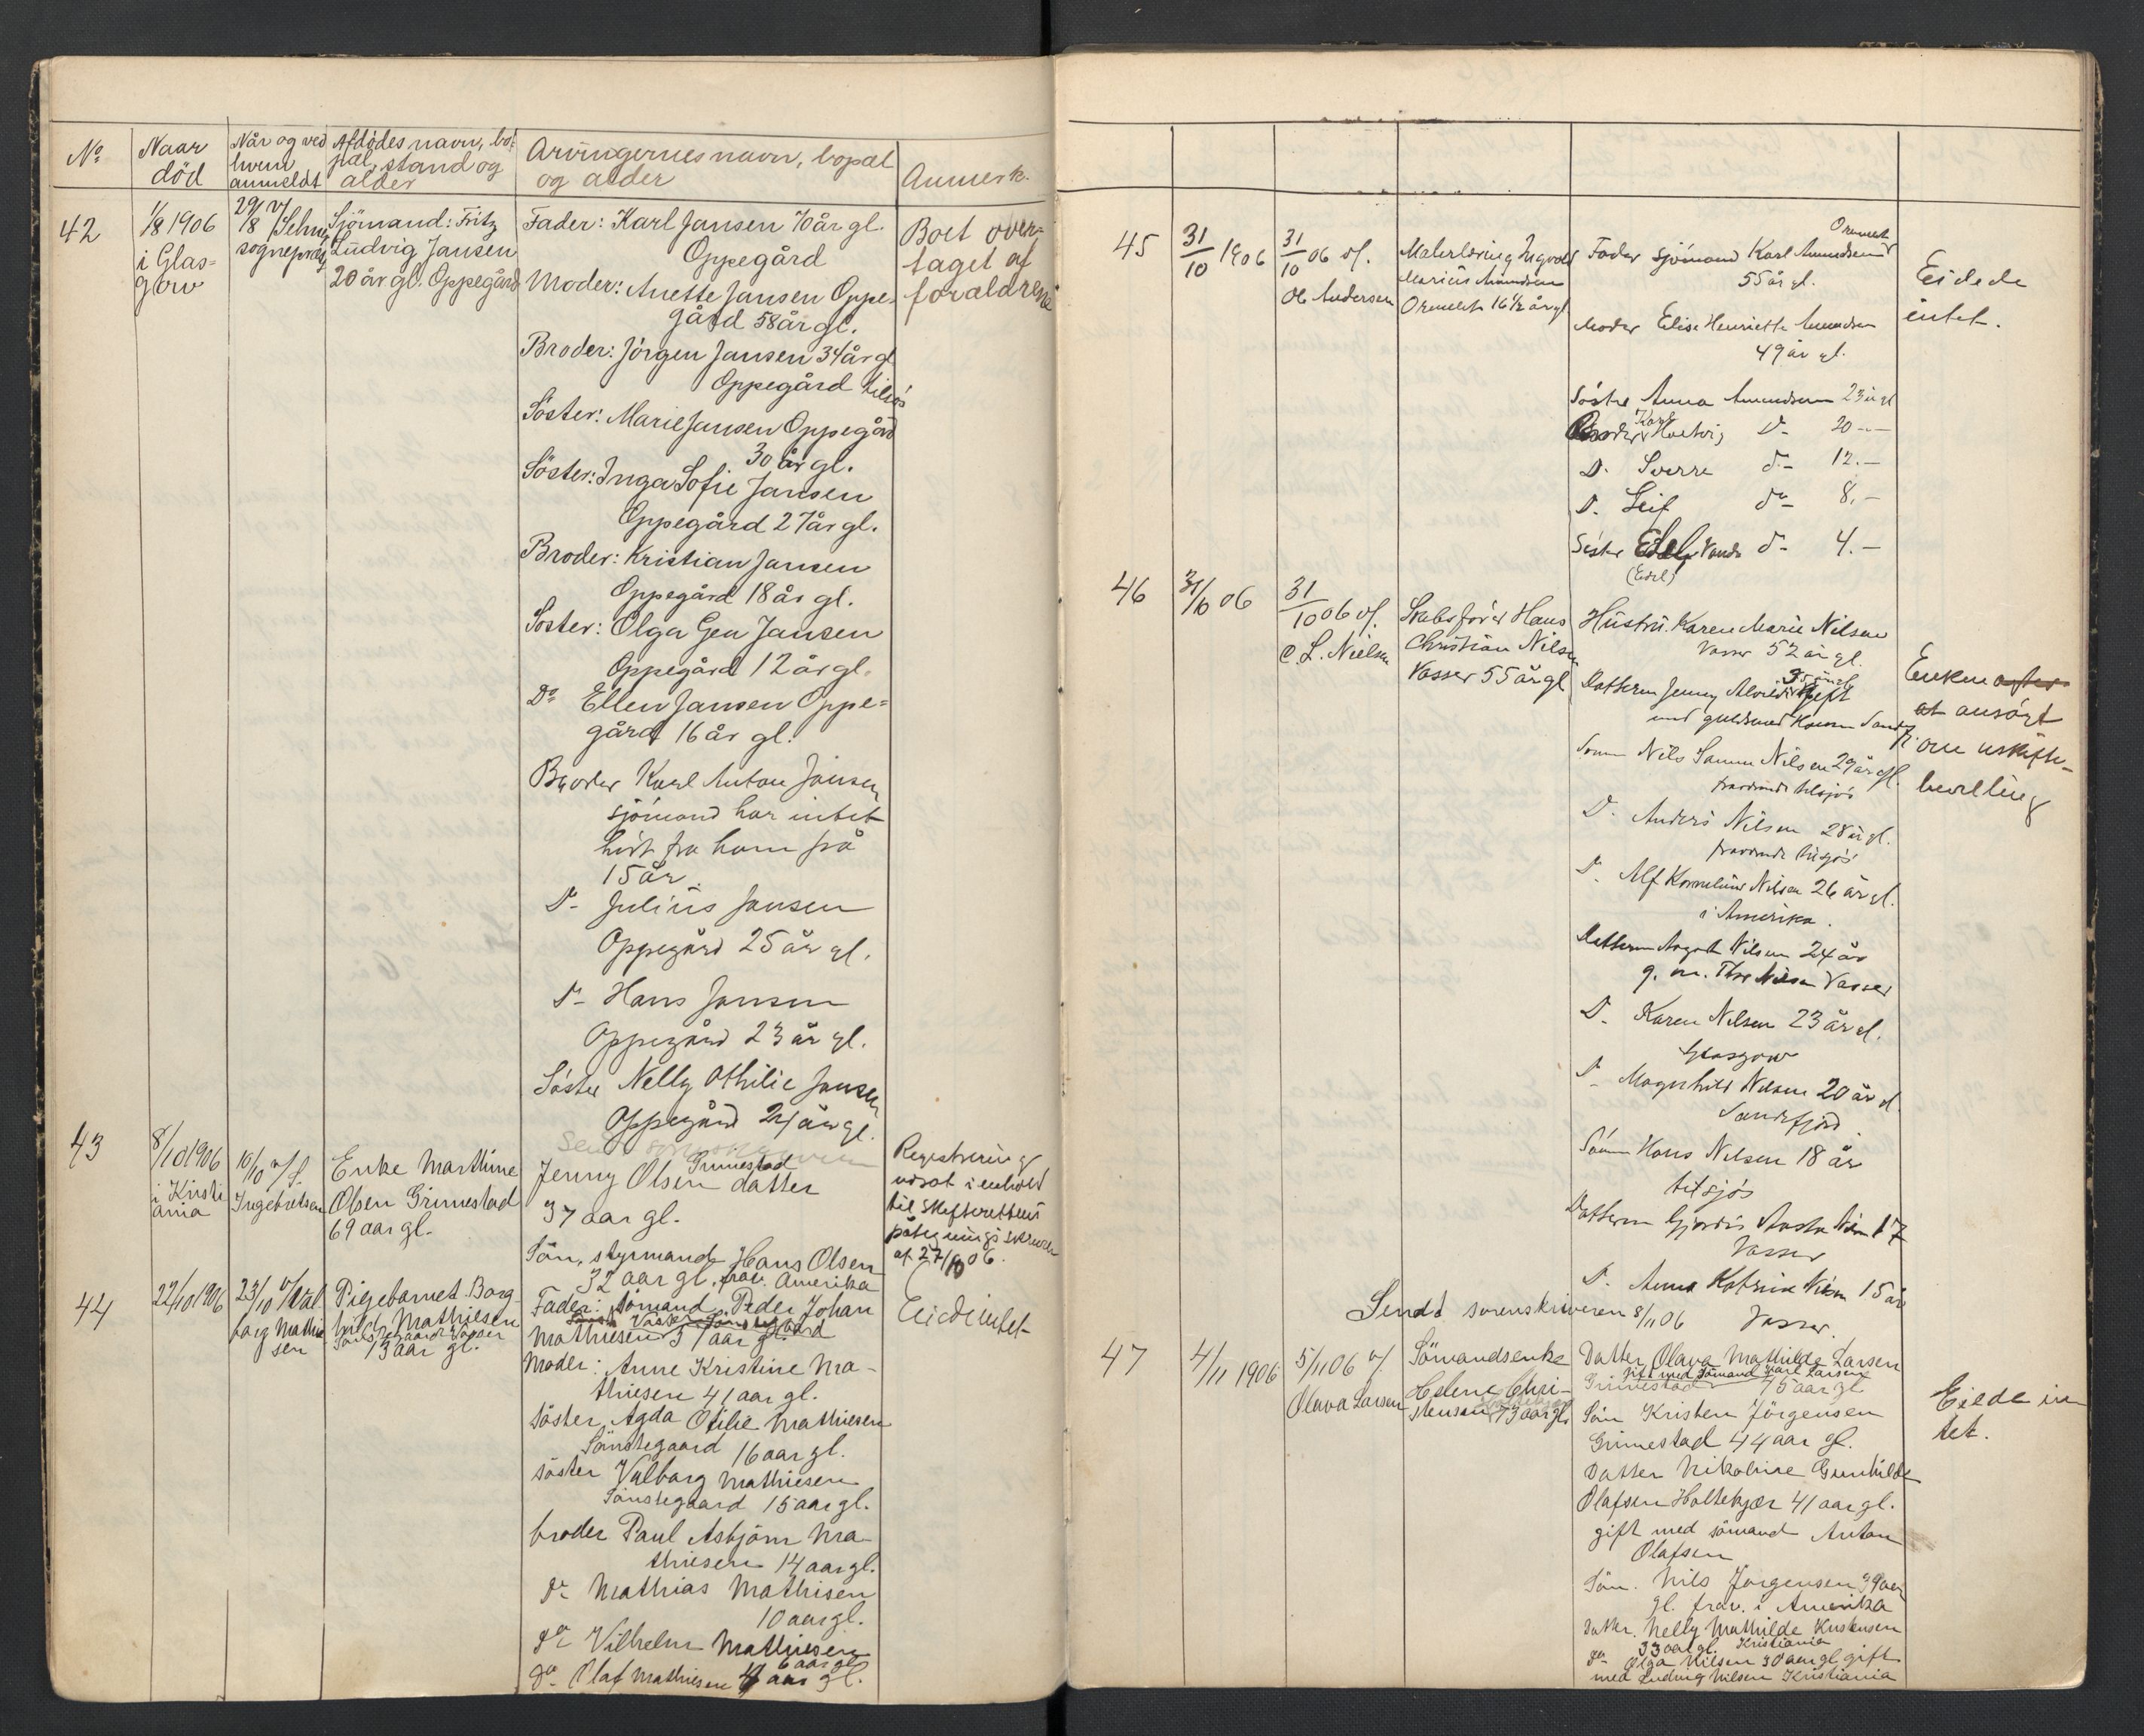 No
Naar
död
Når og ved
hvem
anmeldt
Afdödes navn, bo-
pæl, stand og
alder
Arvingernes navn, bopæl
og alder
Anmerk.
42
1/8 1906
i Glas-
gow
29/8 v/
sogneprest
Sjömand: Fritz
Ludvig Jansen
20 år gl. Oppegård
Fader: Karl Jansen 70 år gl.
Oppegård
Moder: Anette Jansen Oppe-
gård 58 år gl.
Broder: Jörgen Jansen 34 år gl
Oppegård tilsjös
Söster: Marie Jansen Oppegård
30 år gl.
Söster: Inga Sofie Jansen
Oppegård 27 år gl.
Broder: Kristian Jansen
Oppegård 18 år gl.
Söster: Olga Gea Jansen
Oppegård 12 år gl.
Do Ellen Jansen Oppe=
gård 16 år gl.
Broder Karl Anton Jansen
sjömand har intet
hört fra ham på
15 år
D- Julius Jansen
Oppegård 25 år gl.
D- Hans Jansen
Oppegård 23 år gl.
Söster Nelly Othilie Jansen
Oppegård 24 år gl.
Boet over-
taget af
forældrene
43
8/10 1906
i Kristi
ania
10/10 v/
Ingebretsen
Enke Marthine
Olsen Grimestad
69 aar gl.
Sendt sorenskriveren
Grimestad
Jenny Olsen datter
37 aar gl.
Sön, styrmand Hans Olsen
32 aar gl. frav. Amerika
Registrering
udsat i enhold
til Skifterettens
påtegnings skrivelse
af 27/10 06.
44
22/10 1906
23/10 v/ Val
borg Mathie
sen
Pigebarnet Borg
hild Mathiesen
Sönstegaard Vasser
13 aar gl.
Fader: sömand Peder Johan
Mathiesen 51 aar gl.
Moder: Anne Kristine Ma-
thiesen 41 aar gl.
söster Agda Otilie Mathiesen
Sönstegaard 16 aar gl.
söster Valborg Mathiesen
Sönstegaard 15 aar gl.
broder Paul Asbjörn Ma-
thiesen 14 aar gl.
do Mathias Mathisen
10 aar gl.
do Vilhelm Mathiesen
6 aar gl
do Olaf Mathiesen 4 aar gl.
Eied intet
45
31/10 1906
31/10 06 v/.
Ole Andersen
Malerlæring Ingvald
Marius Amundsen
Ormelet 16 1/2 år gl
Ormelet
Fader sjömand Karl Amundsen
55 år gl.
Moder Elise Henriette Amundsen
49 år gl.
Söster Anna Amundsen 23 år gl
Karl
Broder Hartvig D- 20 -
D. Sverre d- 12.-
D. Leif do 8.-
Söster Edel Vanda d- 4.-
(Edel)
Eidede
intet.
46
31/10 06
31/10 06 v/.
C. L. Nielsen
Hans
Christian Nilsen
Vasser 55 år gl
Hustru. Karen Marie Nilsen
Vasser 52 år gl.
Datteren Jenny gift
med guldsmed
Nilsen 29 år gl.
fravær. tilsjös
D. Anders Nilsen 28 år gl.
fraværende tilsjös
D. Alf Kornelius Nilsen 26 år gl.
i Amerika.
Datteren Nilsen 24 år
g. m. Nilsen Vasser
D. Karen Nilsen 23 år gl.
Glasgow
D- Magnhild Nilsen 20 år gl
Sandefjord
Sönnen Hans Nilsen 18 år
til sjös
Datteren Gjordis Nilsen 17
Vasser
D. Anna Katrine Nilsen 15 år
Vasser.
Enken
at ansögt
om uskifte-
bevilling
Sendt sorenskriveren 8/11 06
47
4/11 1906
5/11 06 v/.
Olava Larsen
Sömandsenke
Helene Chri-
stensen 73 aar gl.
Datter Olava Mathilde Larsen
gift med sömand Karl Larsen
Grimestad 45 aar gl
Sön Kristen Jörgensen
Grimestad 44 aar gl.
Datter Nikoline Gunhilde
Olafsen Holtekjær 41 aar gl.
gift med sömand Anton
Olafsen
Sön. Nils Jörgensen 39 aar
gl. frav. i Amerika
Datter. Nelly Mathilde Kristensen
33 aar gl. Kristiania
do Olga Nilsen 30 aar gl gift
med Ludvig Nilsen Kristiania
Eiede in
tet.